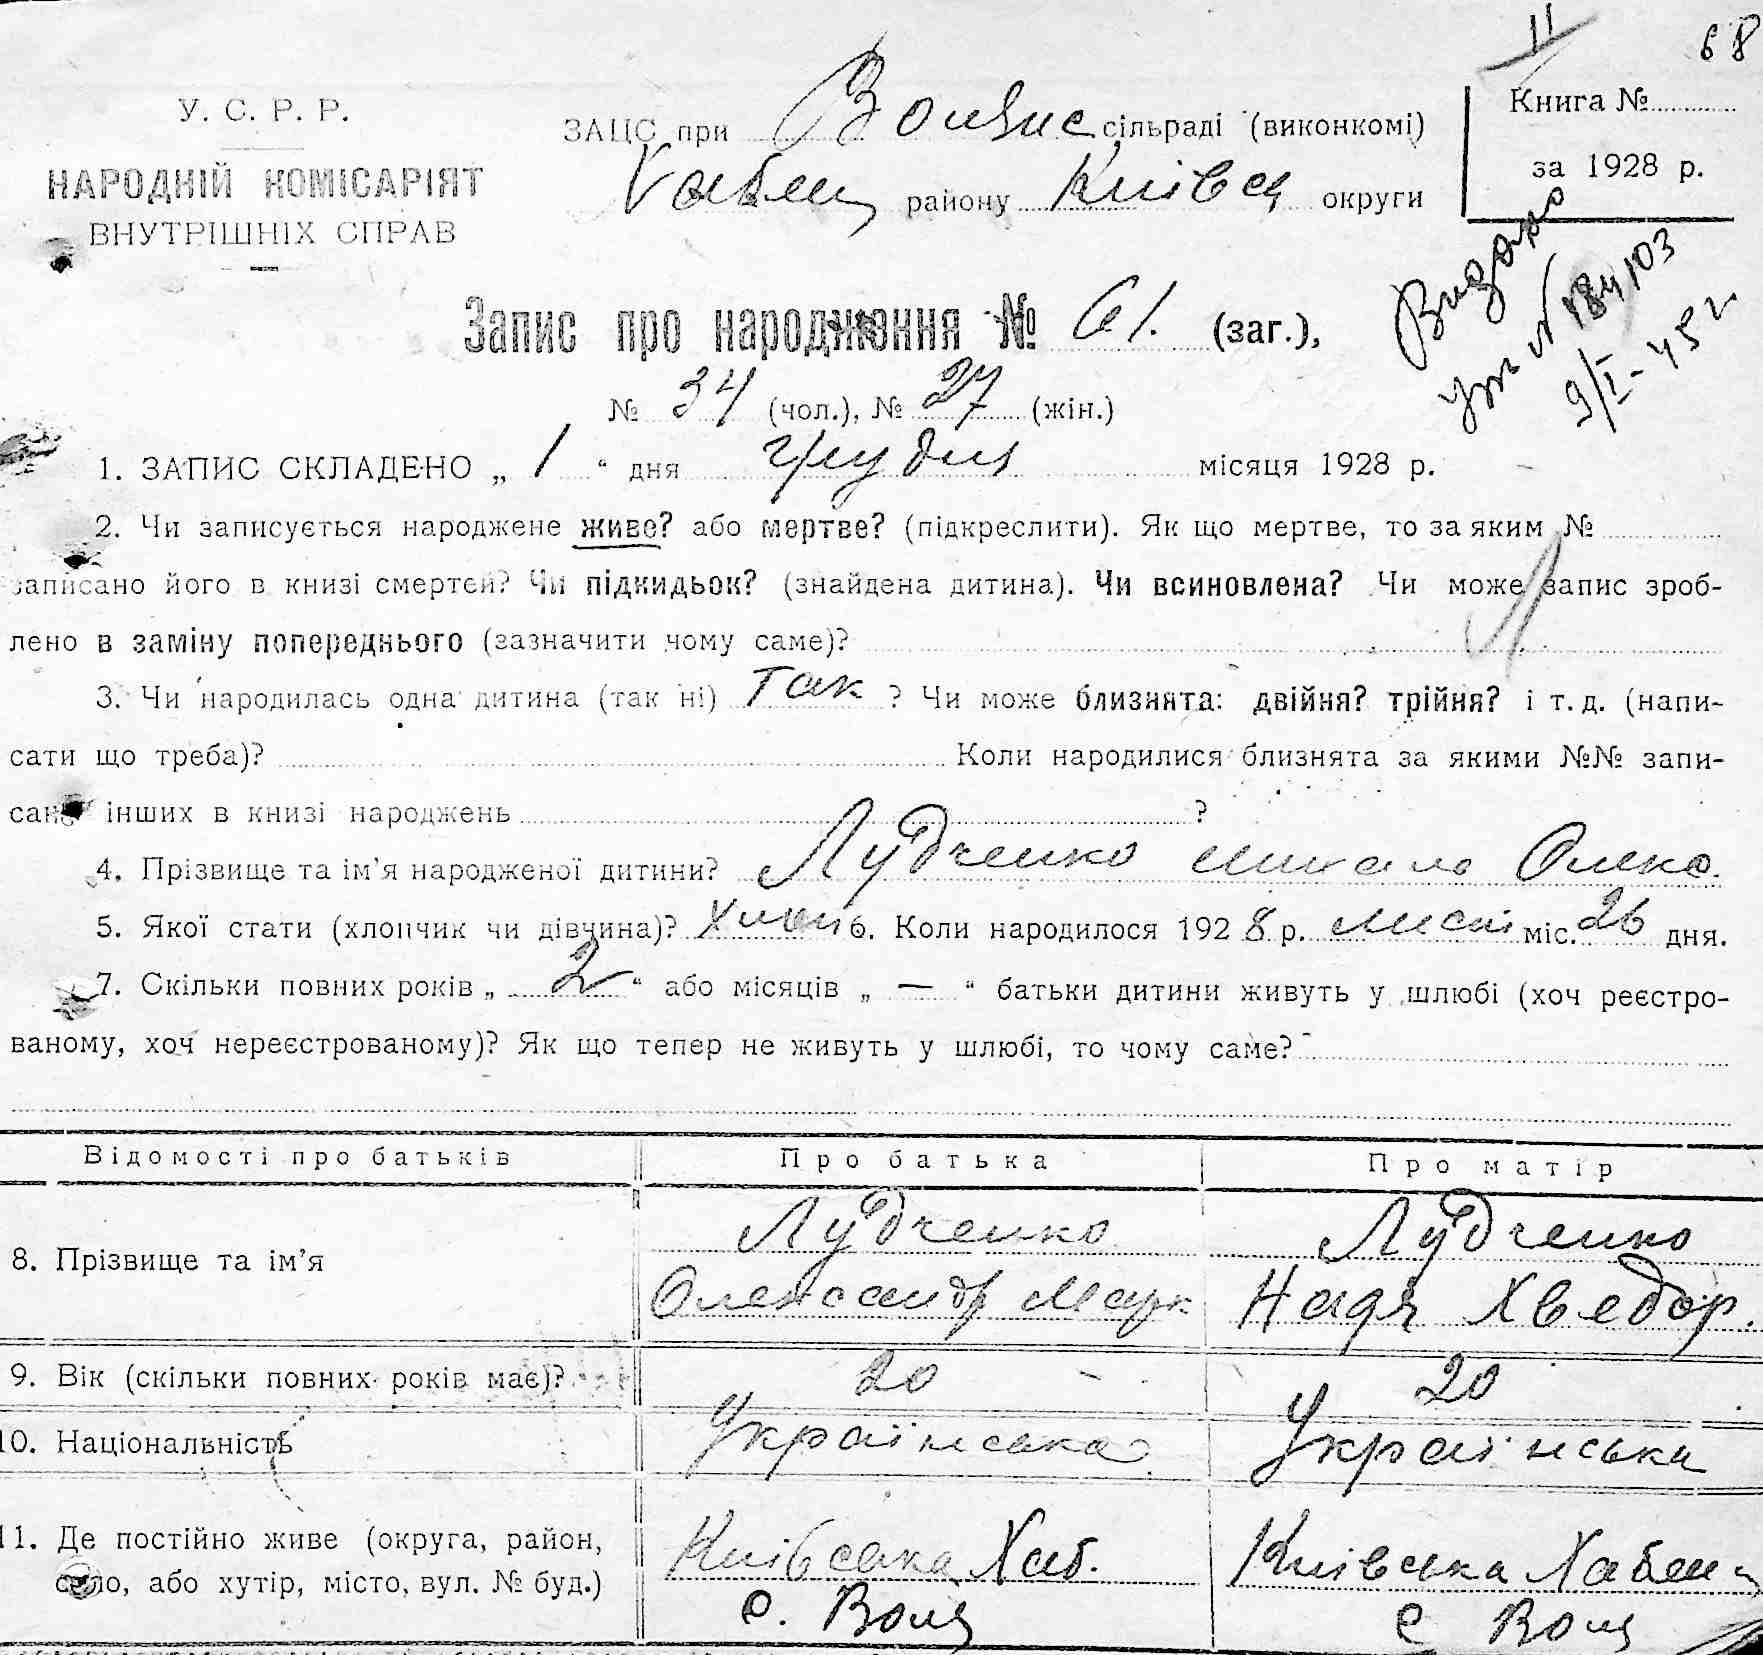 11 68
У. С. Р. Р.
НАРОДНІЙ КОМІСАРІЯТ
ВНУТРІШНІХ СПРАВ
ЗАЦС при сільраді (виконкомі)
Хабен району Київ округи
Книга №
за 1928 р.
Видано
№ 184103
9/I-45 г
Запис про народження № 61. (заг.),
№ 34 (чол.), № 27 (жін.)
1. ЗАПИС СКЛАДЕНО „ 1 “ дня грудня місяця 1928 р.
2. Чи записується народжене живе? або мертве? (підкреслити). Як що мертве, то за яким №
записано його в книзі смертей? Чи підкидьок? (знайдена дитина). Чи всиновлена? Чи може запис зроб-
лено в заміну попереднього (зазначити чому саме)?
3. Чи народилась одна дитина (так ні) так ? Чи може близнята: двійня? трійня? і т. д. (напи-
сати що треба)? Коли народилися близнята за якими №№ запи-
сано інших в книзі народжень ?
4. Прізвище та ім’я народженої дитини? Лудченко Олекс.
5. Якої стати (хлопчик чи дівчина)? Хлоп 6. Коли народилося 1928 р. лист міс. 26 дня.
7. Скільки повних років „ 2 “ або місяців „ — “ батьки дитини живуть у шлюбі (хоч реєстро-
ваному, хоч нереєстрованому)? Як що тепер не живуть у шлюбі, то чому саме?
Відомості про батьків Про батька Про матір
8. Прізвище та ім’я Лудченко Лудченко
Олександр Марк Надя Хведор.
9. Вік (скільки повних років має)? 20 20
10. Національність Українська Українська
11. Де постійно живе (округа, район, Київська Хаб. Київська Хабен
село, або хутір, місто, вул. № буд.) с. Воля с Воля